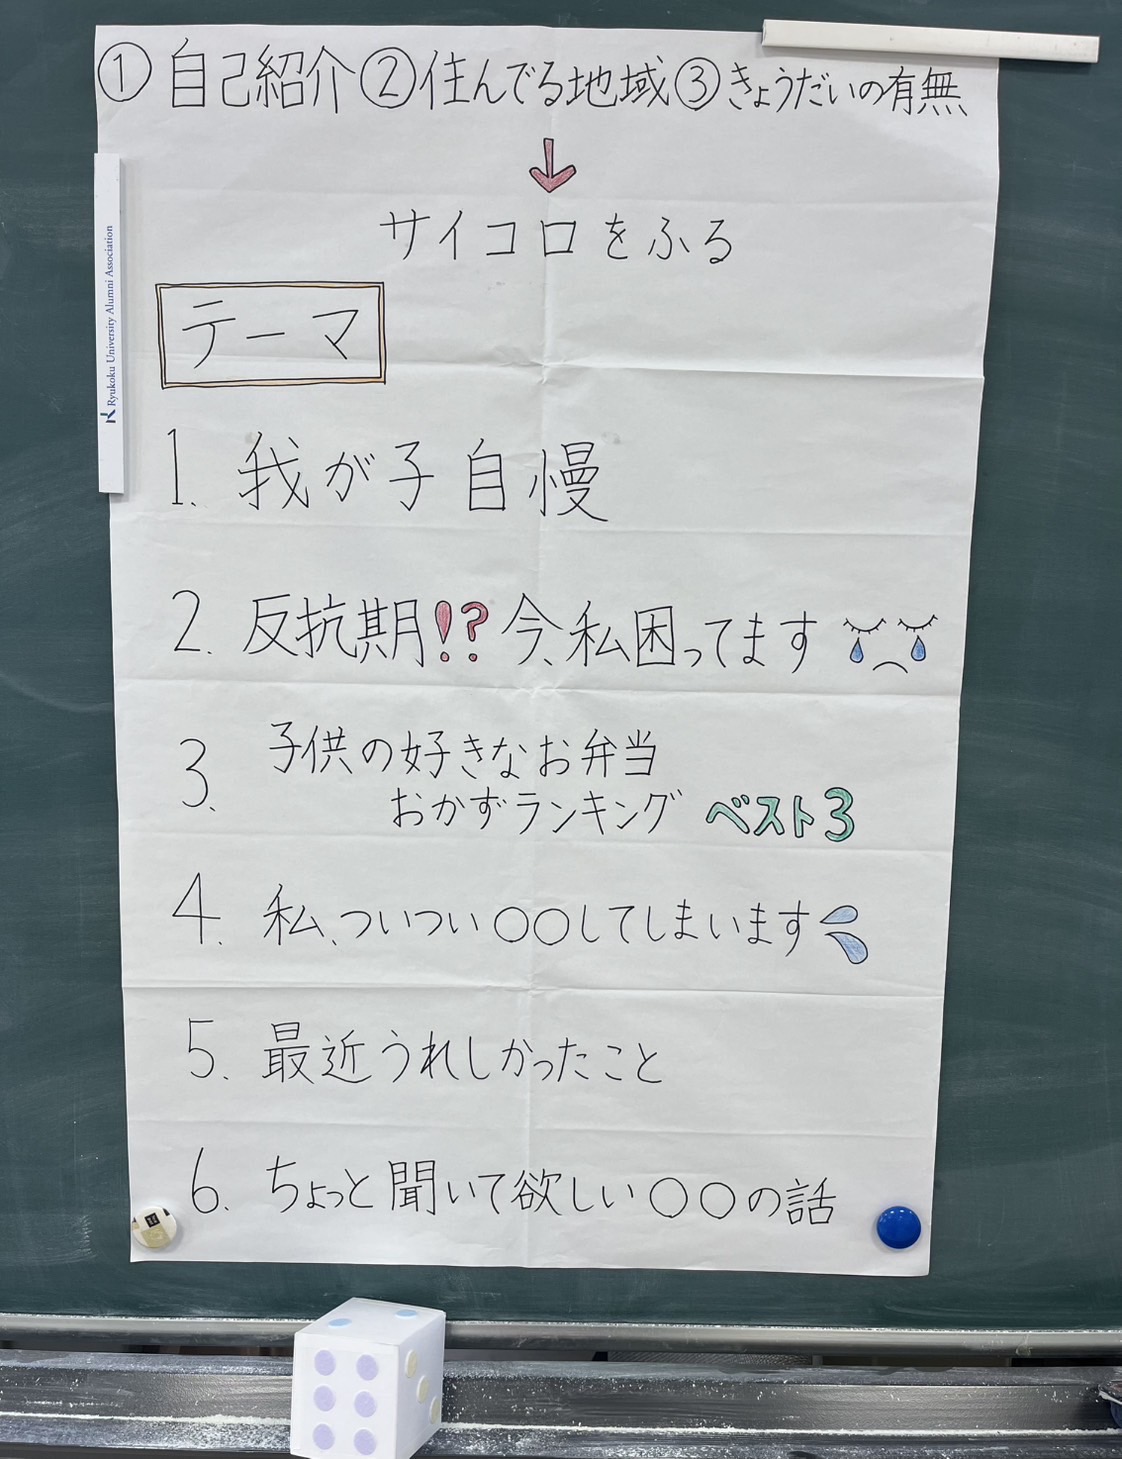 ①自己紹介②住んでる地域③きょうだいの有無
サイコロをふる
テーマ
1. 我が子自慢
2. 反抗期!?今、私困ってます
3. 子供の好きなお弁当
おかずランキング ベスト3
4. 私、ついつい〇〇してしまいます
5. 最近うれしかったこと
6. ちょっと聞いて欲しい〇〇の話
Ryukoku University Alumni Association